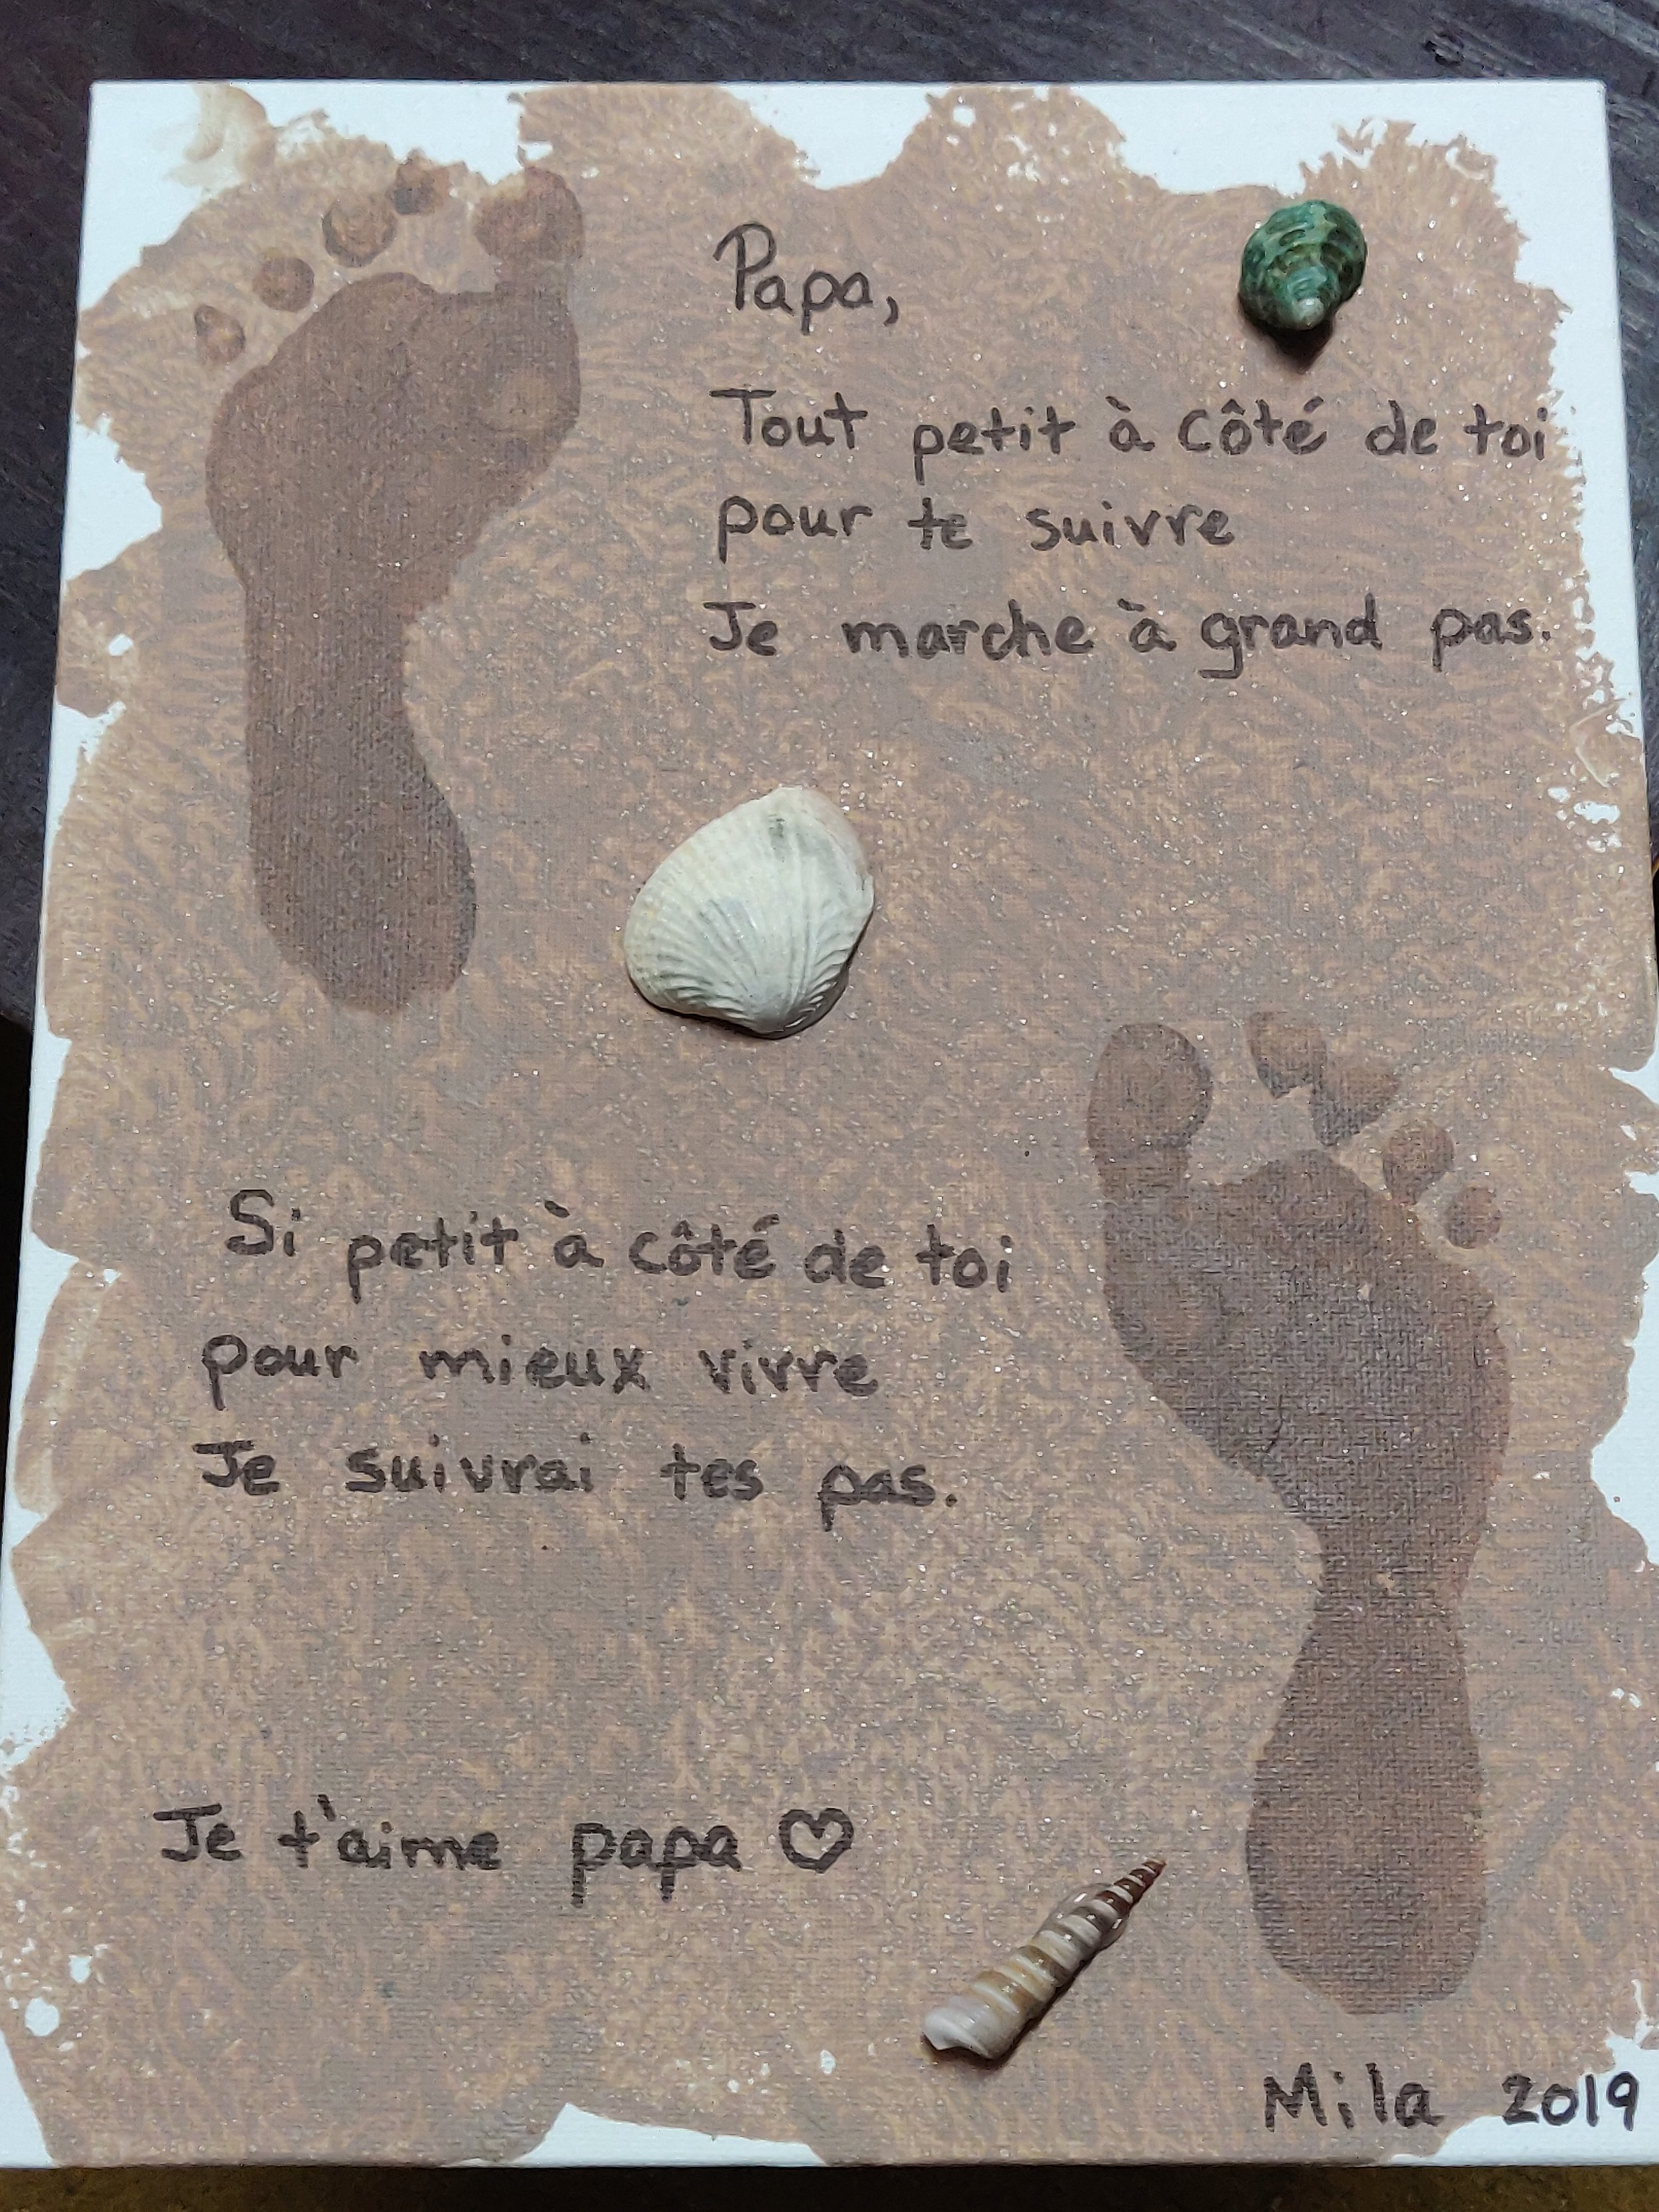 Papa,
Tout petit à côté de toi
pour te suivre
Je marche à grand pas.
Si petit à côté de toi
pour mieux vivre
Je suivrai tes pas.
Je t'aime papa ♡
Mila 2019